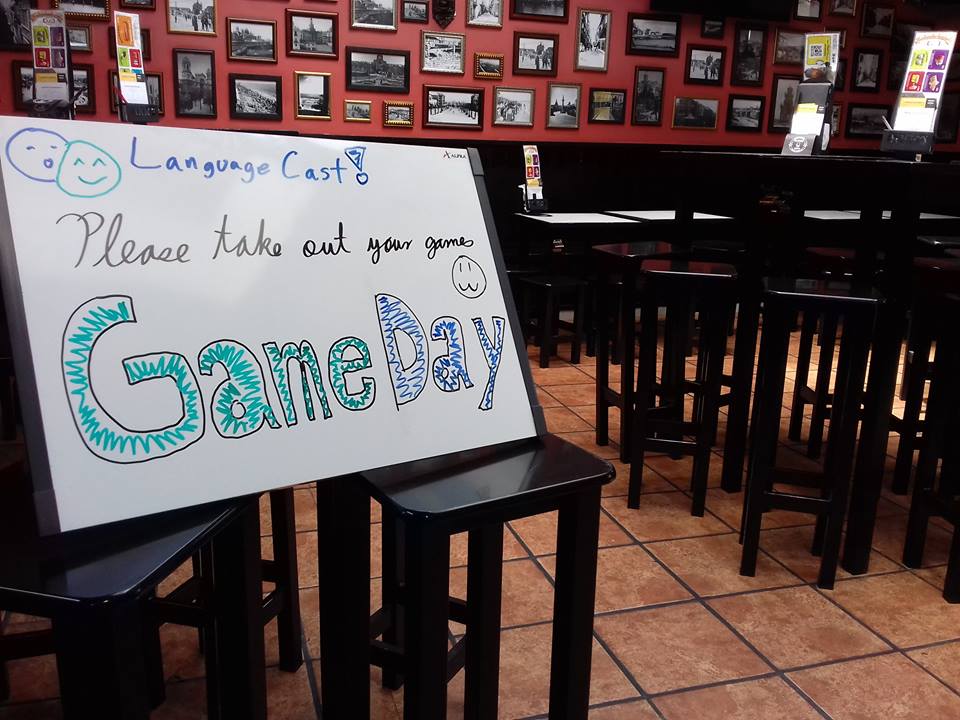 Language Cast!
ALPHA
Please take out your games
Game Day
GIN